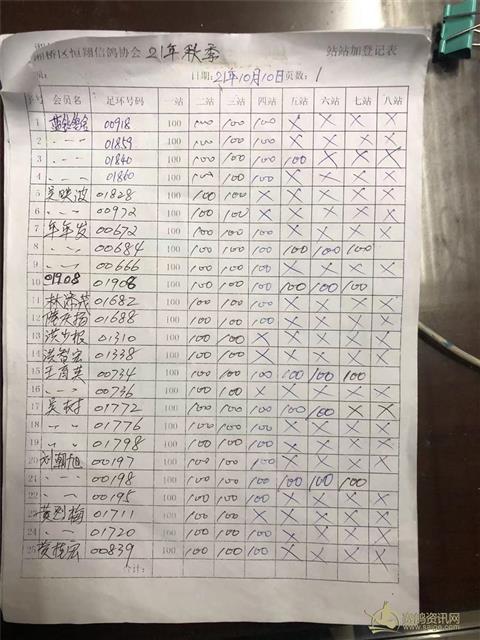 湘桥区恒翔信鸽协会 21年秋季 站站加登记表
日期: 21年10月10日 页数: 1
序号 会员名 足环号码 一站 二站 三站 四站 五站 六站 七站 八站
1 00918 100 100 100 100 X X X X
2 〃 01859 100 100 100 100 X X X X
3 〃 01840 100 100 100 100 100 X X X
4 〃 01860 100 100 100 100 X X X X
5 吴映波 01828 100 100 100 X X X X X
6 〃 00972 100 100 100 X X X X X
7 年年发 00672 100 100 100 100 X X X X
8 〃 00684 100 100 100 100 100 100 100
9 〃 00666 100 100 100 100 X X X X
10 01908 01908 100 100 100 100 100 100 100
11 01682 100 100 100 100 X X X X
12 01688 100 100 100 100 X X X X
13 洪少报 01310 100 100 100 X X X X X
14 洪智宏 01338 100 100 100 X X X X X
15 王育英 00734 100 100 100 100 100 100 100
16 〃 00736 100 100 100 X X X X X
17 01772 100 100 100 100 100 100 X X
18 〃 01776 100 100 100 100 X X X X
19 〃 01798 100 100 100 100 X X X X
20 刘朝旭 00197 100 100 100 100 X X X X
21 〃 00198 100 100 100 100 100 100 100
22 〃 00195 100 100 100 100 X X X X
23 01711 100 100 100 X X X X X
24 〃 01720 100 100 100 100 X X X X
25 00839 100 100 100 100 X X X X
合计:
赛鸽资讯网
www.saige.com